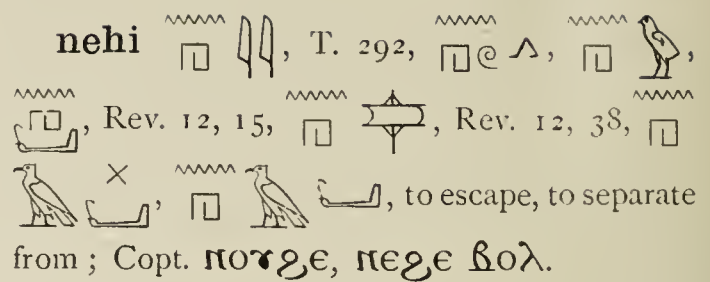 nehi 𓈖𓉔𓇋𓇋, T. 292, 𓈖𓉔𓏲𓂻, 𓈖𓉔𓅱,
𓈖𓉔𓂡, Rev. 12, 15, 𓈖𓉔, Rev. 12, 38, 𓈖𓉔
𓄿𓏴𓂡, 𓈖𓉔𓄿𓂡, to escape, to separate
from ; Copt. ⲛⲟⲩϩⲉ, ⲛⲉϩⲉ ⲃⲟⲗ.